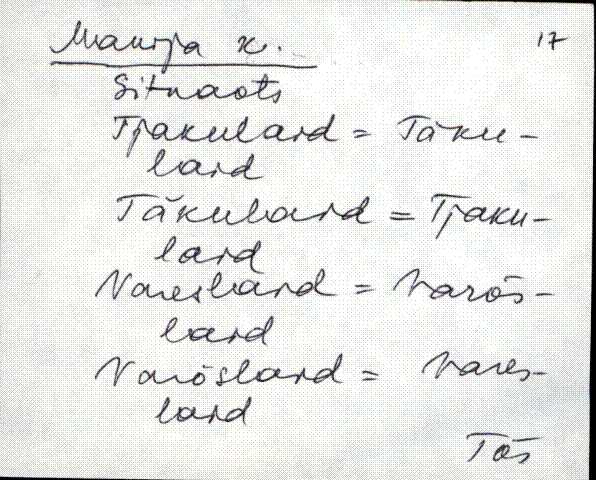 Manija k. 17
Sitnaots
Tjakulaid = Täku-
laid
Täkulaid = Tjaku-
laid
Vareslaid = Varõs-
laid
Varõslaid = Vares-
laid
Tõs